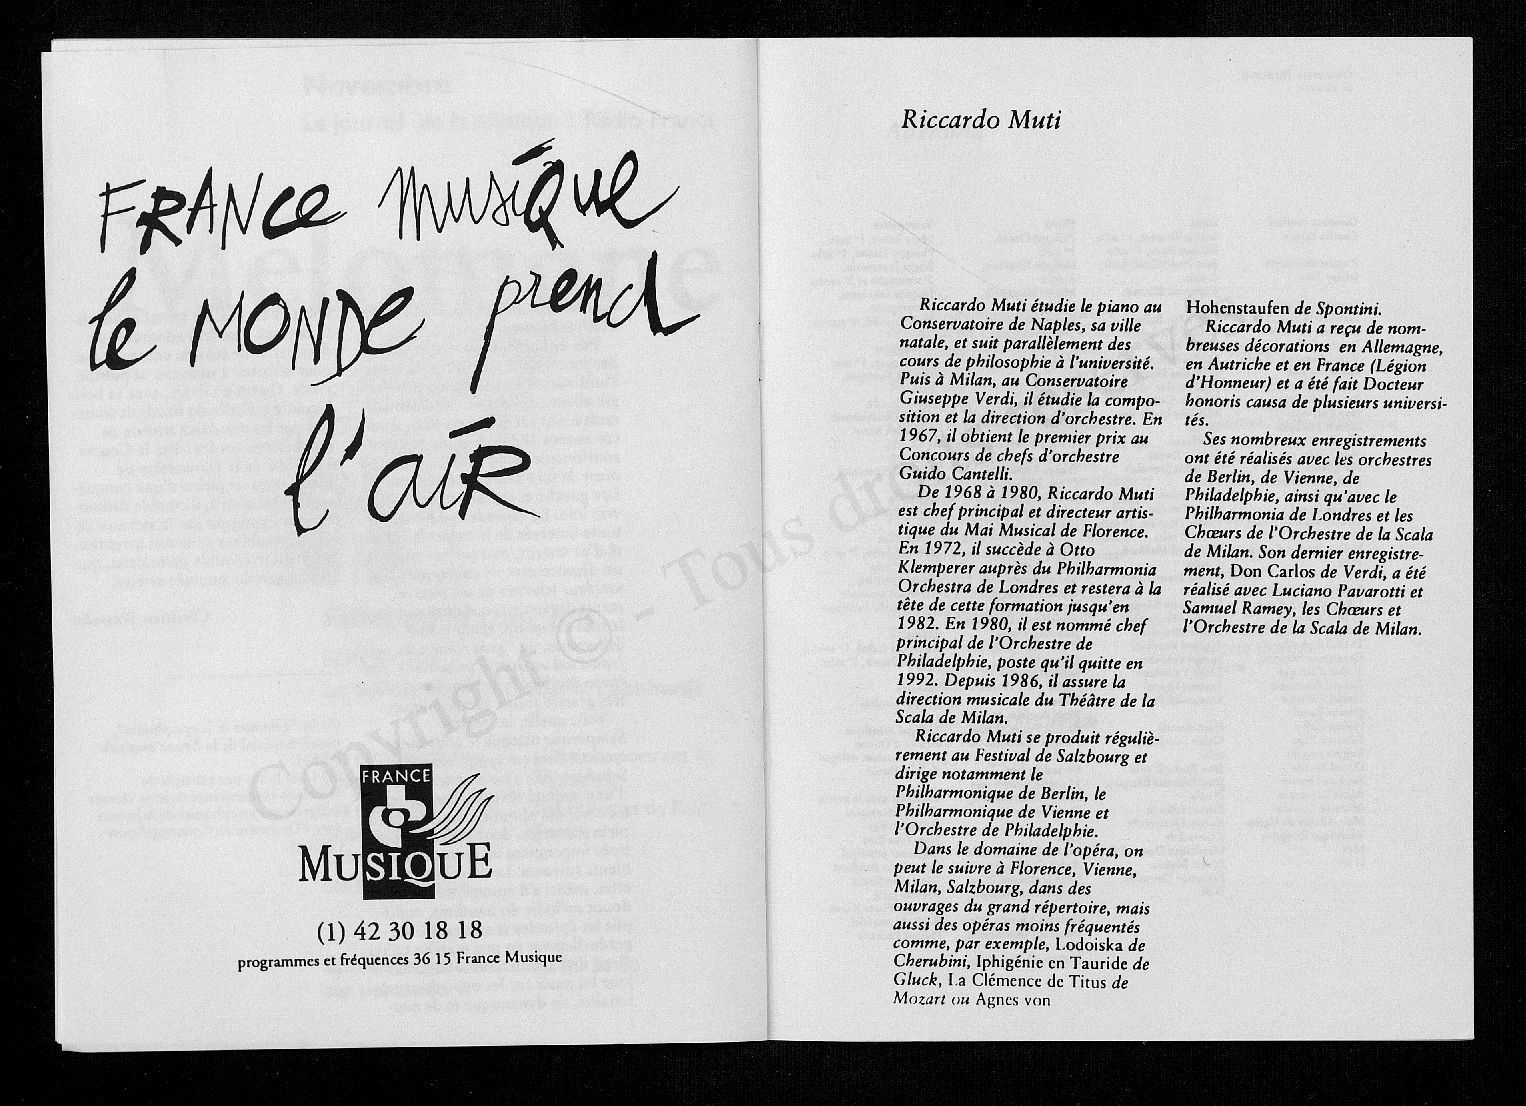 FRANce musique
le MONDe prend
l'aiR
FRANCE
MUSIQUE
(1) 42 30 18 18
programmes et fréquences 36 15 France Musique
Riccardo Muti
Riccardo Muti étudie le piano au
Conservatoire de Naples, sa ville
natale, et suit parallèlement des
cours de philosophie à l'université.
Puis à Milan, au Conservatoire
Giuseppe Verdi, il étudie la compo-
sition et la direction d'orchestre. En
1967, il obtient le premier prix au
Concours de chefs d'orchestre
Guido Cantelli.
De 1968 à 1980, Riccardo Muti
est chef principal et directeur artis-
tique du Mai Musical de Florence.
En 1972, il succède à Otto
Klemperer auprès du Philharmonia
Orchestra de Londres et restera à la
tête de cette formation jusqu'en
1982. En 1980, il est nommé chef
principal de l'Orchestre de
Philadelphie, poste qu'il quitte en
1992. Depuis 1986, il assure la
direction musicale du Théâtre de la
Scala de Milan.
Riccardo Muti se produit réguliè-
rement au Festival de Salzbourg et
dirige notamment le
Philharmonique de Berlin, le
Philharmonique de Vienne et
l'Orchestre de Philadelphie.
Dans le domaine de l'opéra, on
peut le suivre à Florence, Vienne,
Milan, Salzbourg, dans des
ouvrages du grand répertoire, mais
aussi des opéras moins fréquentés
comme, par exemple, Lodoiska de
Cherubini, Iphigénie en Tauride de
Gluck, La Clémence de Titus de
Mozart ou Agnes von
Hohenstaufen de Spontini.
Riccardo Muti a reçu de nom-
breuses décorations en Allemagne,
en Autriche et en France (Légion
d'Honneur) et a été fait Docteur
honoris causa de plusieurs universi-
tés.
Ses nombreux enregistrements
ont été réalisés avec les orchestres
de Berlin, de Vienne, de
Philadelphie, ainsi qu'avec le
Philharmonia de Londres et les
Chœurs de l'Orchestre de la Scala
de Milan. Son dernier enregistre-
ment, Don Carlos de Verdi, a été
réalisé avec Luciano Pavarotti et
Samuel Ramey, les Chœurs et
l'Orchestre de la Scala de Milan.
Copyright © - Tous dro